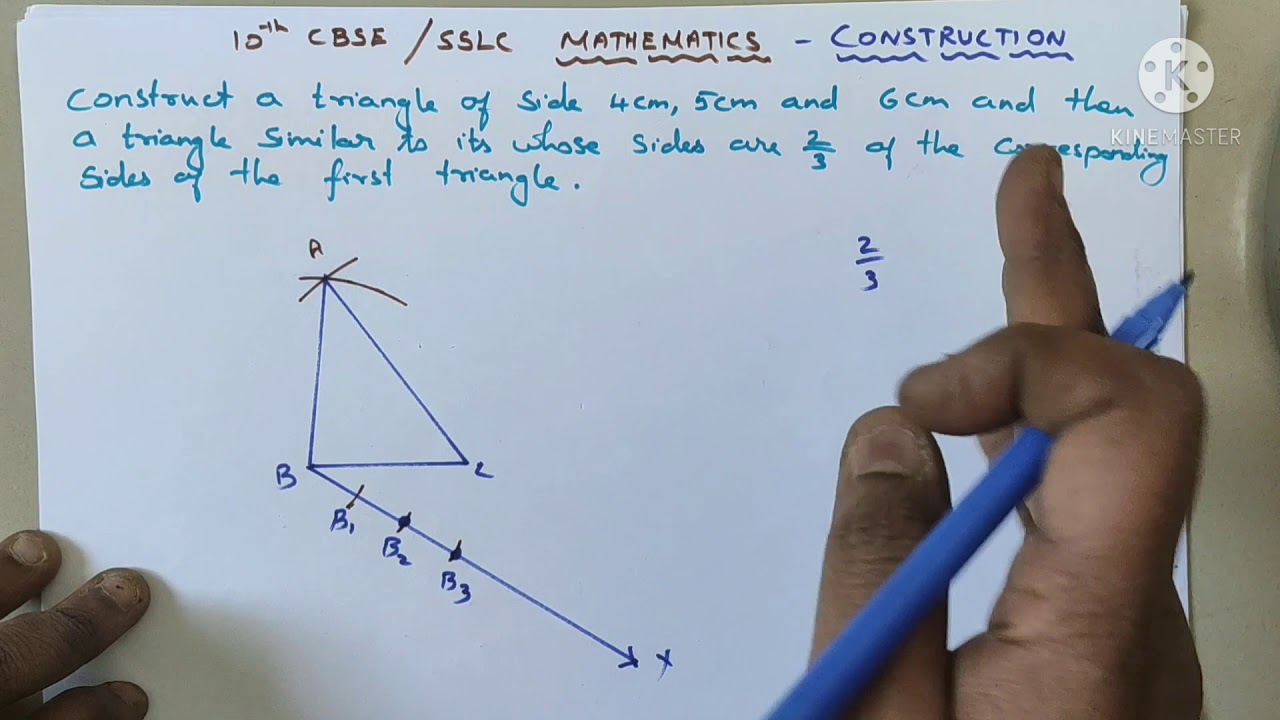 10th CBSE / SSLC MATHEMATICS - CONSTRUCTION
Construct a triangle of side 4cm, 5cm and 6cm and then
a triangle similar to its whose sides are 2/3 of the corresponding
sides of the first triangle.
K
KINEMASTER
A
2/3
B
C
B1
B2
B3
X